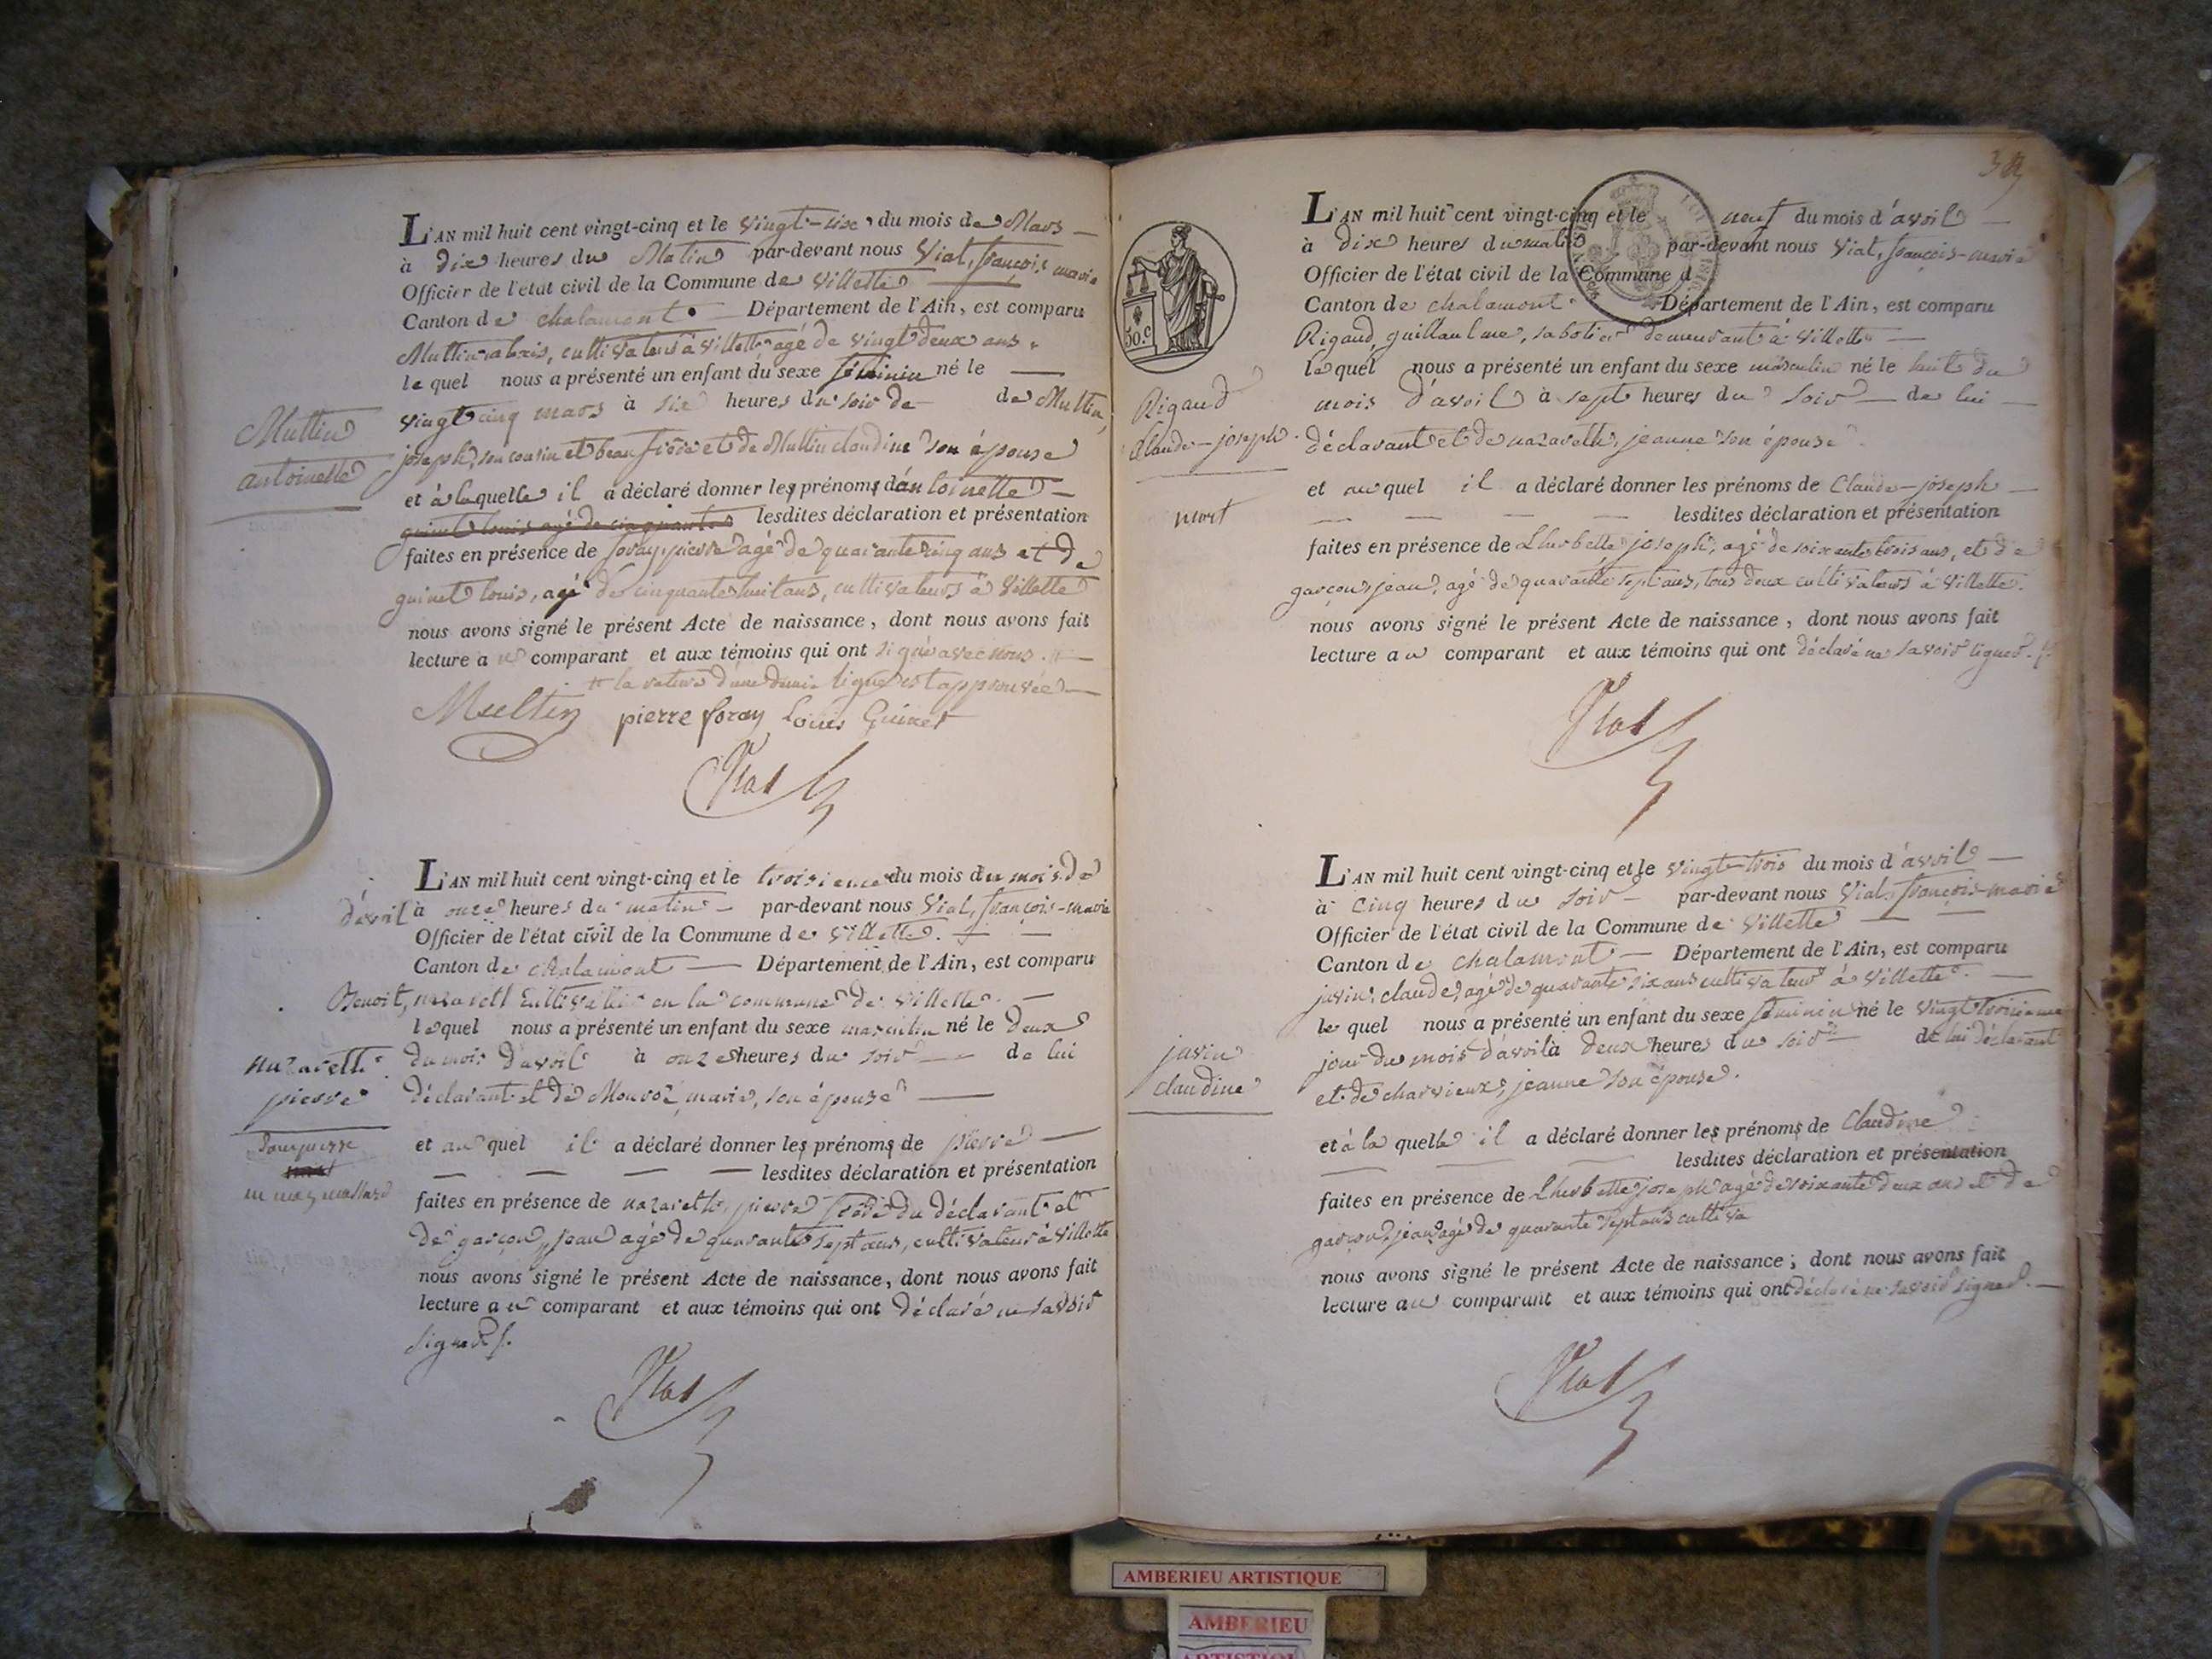 L'AN mil huit cent vingt-cinq et le vingt-six du mois de Mars
à dix heures du Matin par-devant nous Vial, françois marie
Officier de l'état civil de la Commune de Villette
Canton de chalamont Département de l'Ain, est comparu
Multin cultivateur à Villette agé de vingt deux ans
le quel nous a présenté un enfant du sexe féminin né le
vingt cinq mars à six heures du soir de de Multin,
joseph, son cousin et beau frère et de Multin claudine son épouse
Multin
antoinette
et à laquelle il a déclaré donner les prénoms d'antoinette
guinet louis agé de cinquante lesdites déclaration et présentation
faites en présence de foray, pierre agé de quarante cinq ans et de
guinet louis, agé de cinquante huit ans, cultivateurs à Villette
nous avons signé le présent Acte de naissance, dont nous avons fait
lecture au comparant et aux témoins qui ont signé avec nous.
la rature d'une demie ligne est approuvée
Multin pierre foray Louis Guinet
Vial
L'AN mil huit cent vingt-cinq et le troisieme du mois du mois de
d'avril à onze heures du matin par-devant nous Vial, françois-marie
Officier de l'état civil de la Commune de Villette.
Canton de chalamont Département de l'Ain, est comparu
Benoit, nazareth cultivateur en la commune de Villette.
lequel nous a présenté un enfant du sexe masculin né le deux
du mois d'avril à onze heures du soir de lui
déclarant et de marie, son épouse
nazareth
pierre
et au quel il a déclaré donner les prénoms de pierre
lesdites déclaration et présentation
faites en présence de nazareth, pierre frère du déclarant et
de garçon, jean agé de quarante sept ans, cultivateur à Villette
nous avons signé le présent Acte de naissance, dont nous avons fait
lecture au comparant et aux témoins qui ont déclaré ne savoir
signer.
Vial
50.c
L'AN mil huit cent vingt-cinq et le neuf du mois d'avril
à dix heures du matin par-devant nous Vial, françois-marie
Officier de l'état civil de la Commune d
Canton de chalamont Département de l'Ain, est comparu
Rigaud, guillaulme, sabotier demeurant à Villette
lequel nous a présenté un enfant du sexe masculin né le huit du
mois d'avril à sept heures du soir de lui
déclarant et de nazareth, jeanne son épouse
Rigaud
Claude-joseph
mort
et au quel il a déclaré donner les prénoms de Claude-joseph
lesdites déclaration et présentation
faites en présence de Lherbette joseph, agé de soixante trois ans, et de
garçon, jean, agé de quarante sept ans, tous deux cultivateurs à Villette.
nous avons signé le présent Acte de naissance, dont nous avons fait
lecture au comparant et aux témoins qui ont déclaré ne savoir signer.
Vial
L'AN mil huit cent vingt-cinq et le vingt-trois du mois d'avril
à cinq heures du soir par-devant nous Vial, françois-marie
Officier de l'état civil de la Commune de Villette
Canton de chalamont Département de l'Ain, est comparu
juvin, claude, agé de quarante six ans cultivateur à Villette.
le quel nous a présenté un enfant du sexe féminin né le vingt troisieme
jour du mois d'avril à deux heures du soir de lui déclarant
et de charvieux, jeanne son épouse.
juvin
claudine
et à la quelle il a déclaré donner les prénoms de Claudine
lesdites déclaration et présentation
faites en présence de Lherbette joseph agé de soixante deux ans et de
garçon, jean agé de quarante sept ans cultiva
nous avons signé le présent Acte de naissance; dont nous avons fait
lecture au comparant et aux témoins qui ont déclaré ne savoir signer.
Vial
AMBERIEU ARTISTIQUE
AMBERIEU
ARTISTIQUE